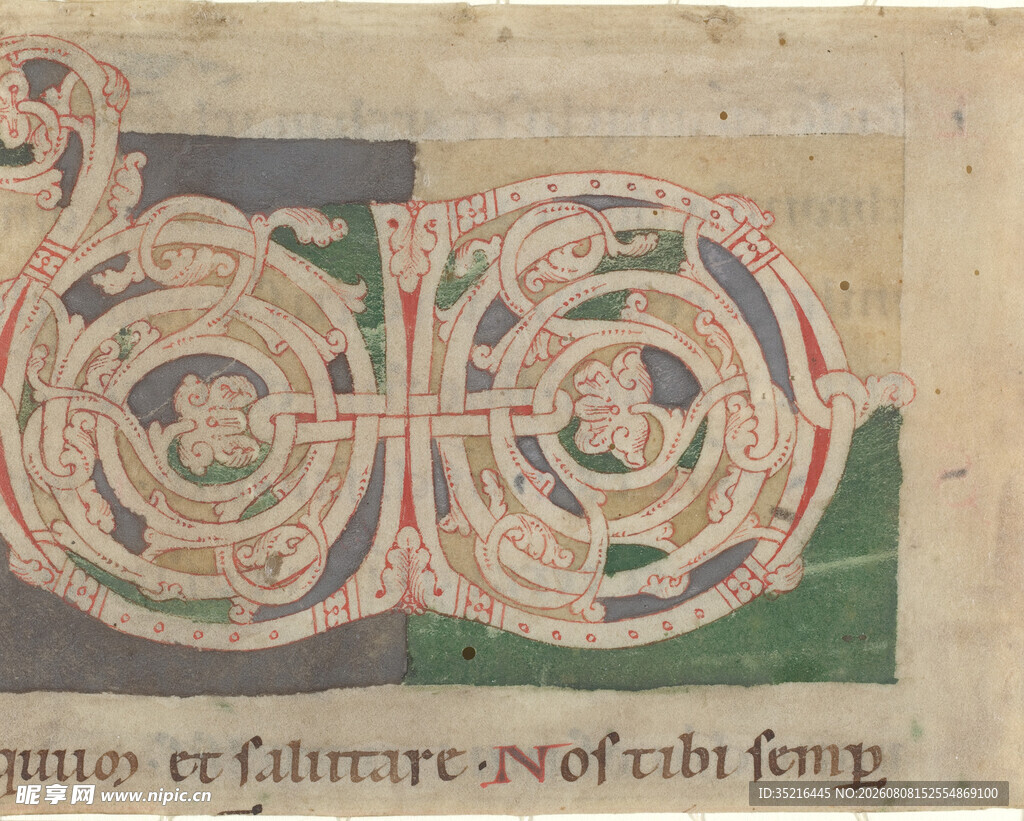 quum et salutare · Nos tibi semꝑ
昵享网 www.nipic.cn
ID:35216445 NO:20260808152554869100